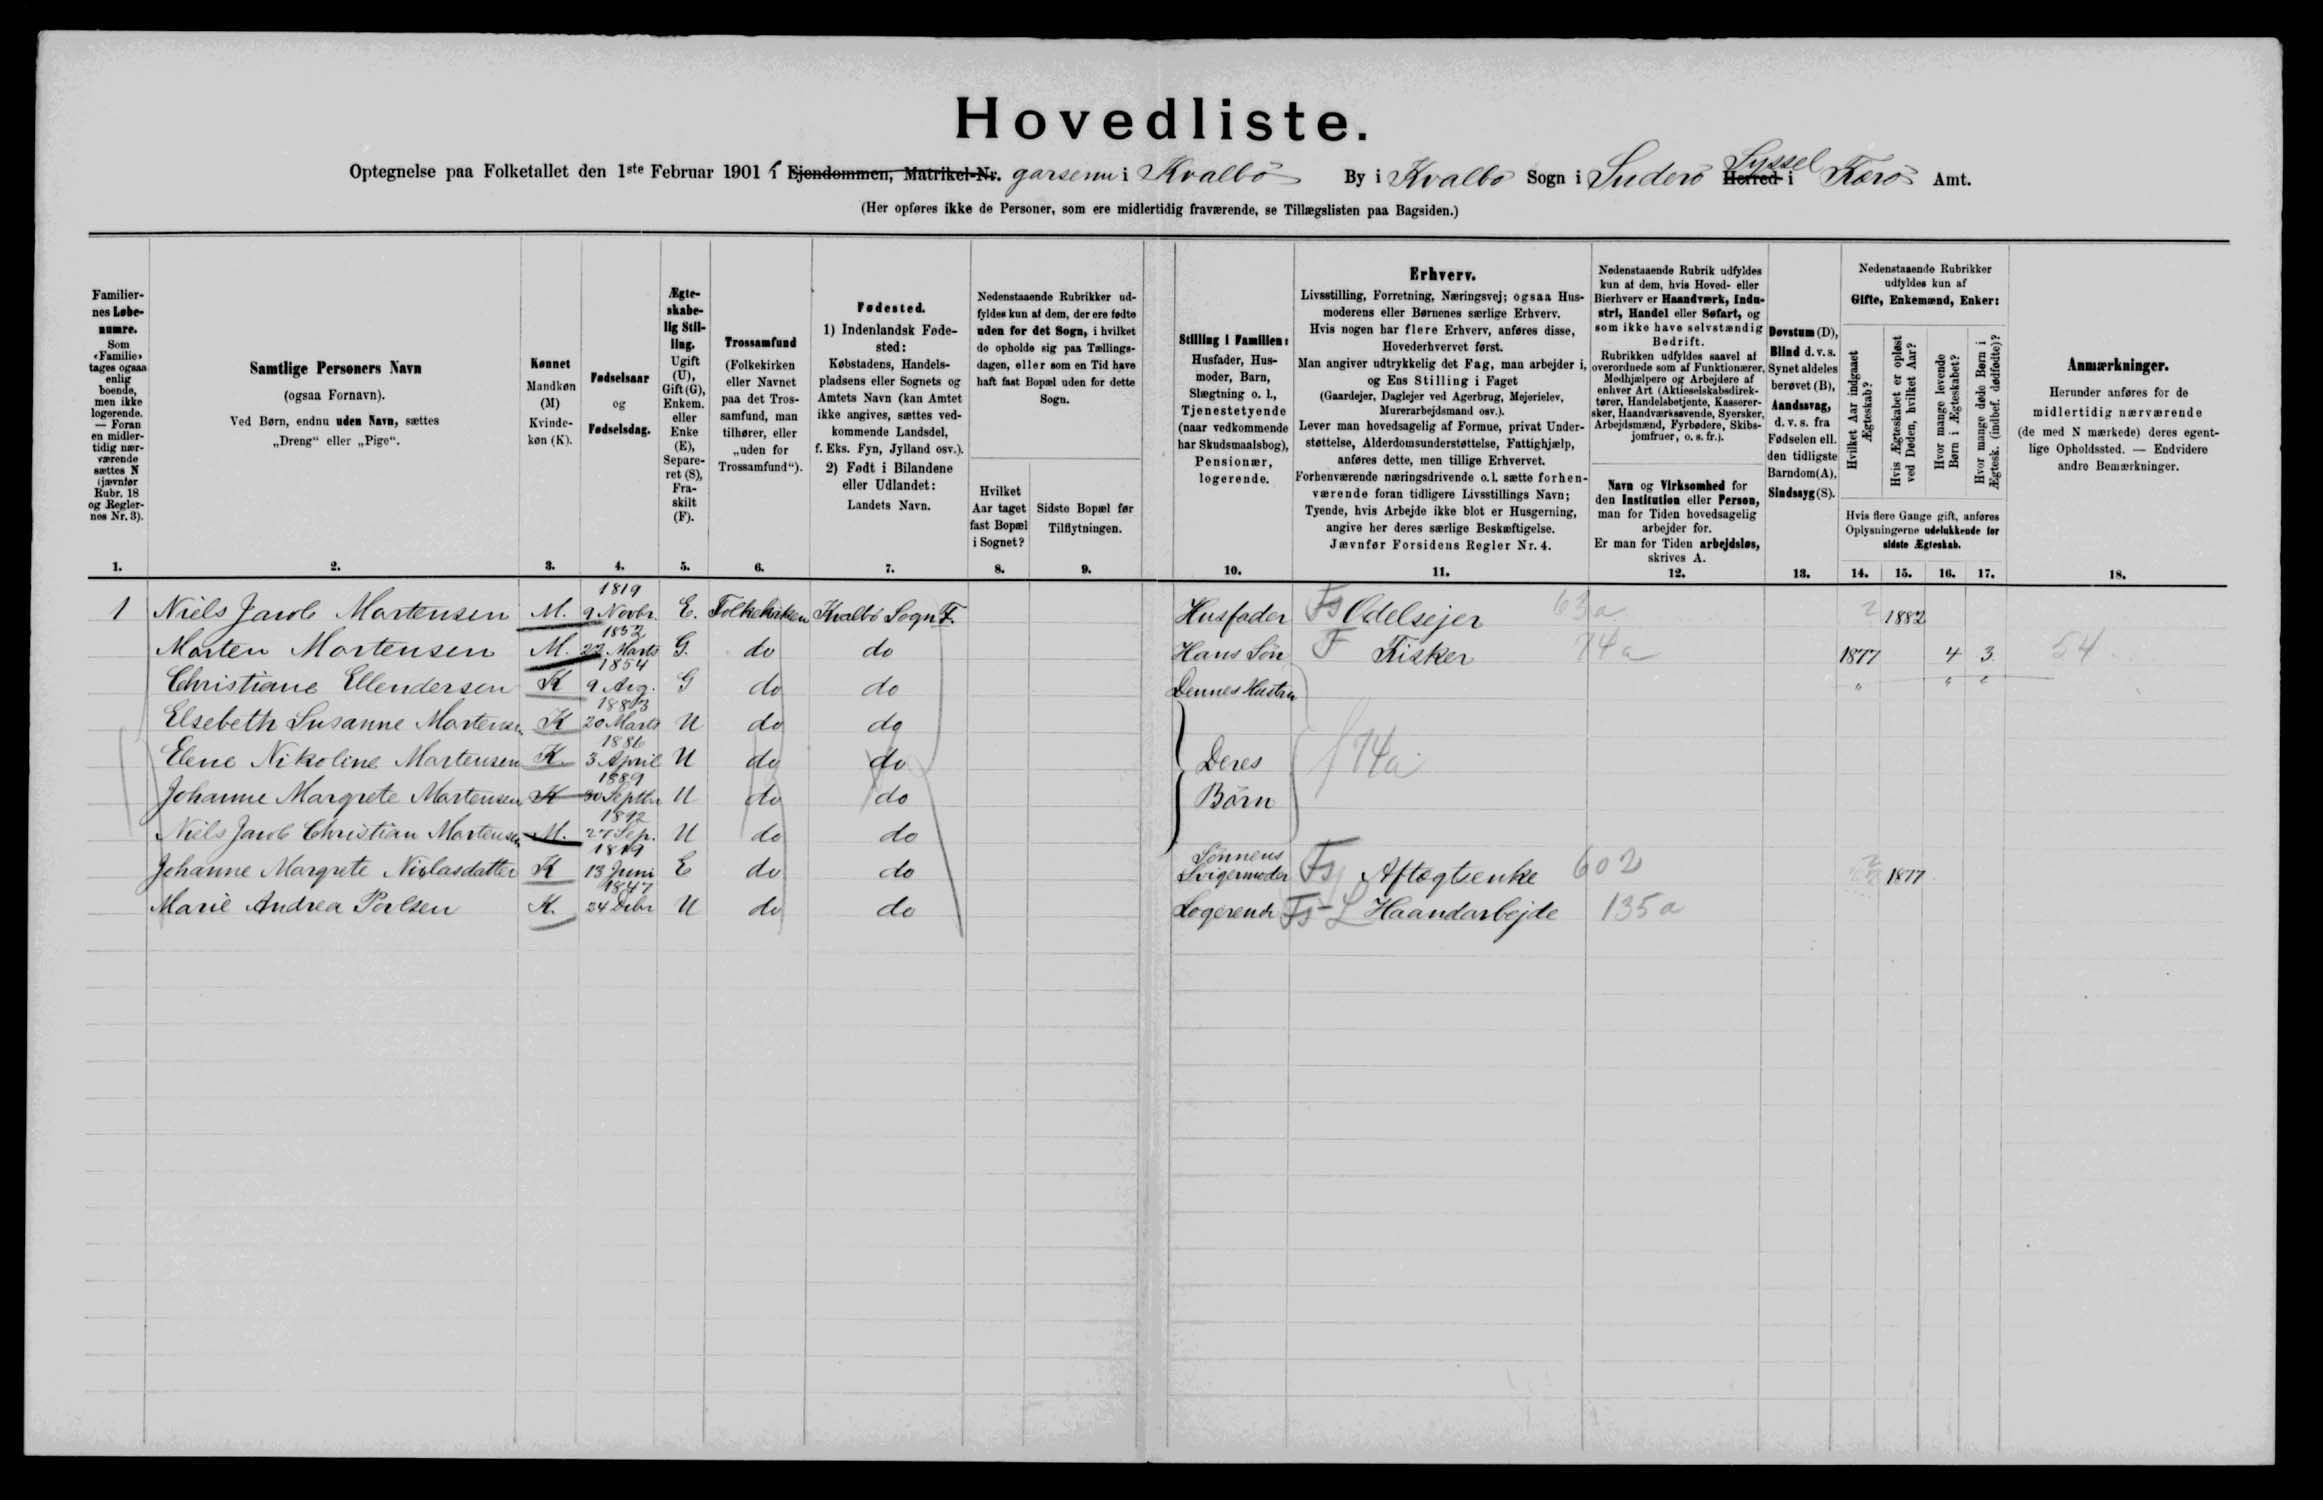 Hovedliste.
Optegnelse paa Folketallet den 1ste Februar 1901 i Ejendommen, Matrikel-Nr. garsenu i Kvalbö By i Kvalbö Sogn i Suderö Herred Syssel i Færö Amt.
(Her opføres ikke de Personer, som ere midlertidig fraværende, se Tillægslisten paa Bagsiden.)
Familiernes Løbenumre.
Som «Familie» tages ogsaa enlig boende, men ikke logerende. — Foran en midlertidig nærværende sættes N (jævnfør Rubr. 18 og Reglernes Nr. 3).
Samtlige Personers Navn
(ogsaa Fornavn).
Ved Børn, endnu uden Navn, sættes
„Dreng“ eller „Pige“.
Kønnet
Mandkøn (M)
Kvindekøn (K).
Fødselsaar
og
Fødselsdag.
Ægteskabelig Stilling.
Ugift (U), Gift (G), Enkem. eller Enke (E), Separeret (S), Fraskilt (F).
Trossamfund
(Folkekirken eller Navnet paa det Trossamfund, man tilhører, eller „uden for Trossamfund“).
Fødested.
1) Indenlandsk Fødested:
Købstadens, Handelspladsens eller Sognets og Amtets Navn (kan Amtet ikke angives, sættes vedkommende Landsdel, f. Eks. Fyn, Jylland osv.).
2) Født i Bilandene eller Udlandet:
Landets Navn.
Nedenstaaende Rubrikker udfyldes kun af dem, der ere fødte uden for det Sogn, i hvilket de opholde sig paa Tællingsdagen, eller som en Tid have haft fast Bopæl uden for dette Sogn.
Hvilket Aar taget fast Bopæl i Sognet?
Sidste Bopæl før Tilflytningen.
Stilling i Familien:
Husfader, Husmoder, Barn, Slægtning o. l., Tjenestetyende (naar vedkommende har Skudsmaalsbog), Pensionær, logerende.
Erhverv.
Livsstilling, Forretning, Næringsvej; ogsaa Husmoderens eller Børnenes særlige Erhverv.
Hvis nogen har flere Erhverv, anføres disse, Hovederhvervet først.
Man angiver udtrykkelig det Fag, man arbejder i, og Ens Stilling i Faget
(Gaardejer, Daglejer ved Agerbrug, Mejerielev, Murerarbejdsmand osv.).
Lever man hovedsagelig af Formue, privat Understøttelse, Alderdomsunderstøttelse, Fattighjælp, anføres dette, men tillige Erhvervet.
Forhenværende næringsdrivende o. l. sætte forhenværende foran tidligere Livsstillings Navn;
Tyende, hvis Arbejde ikke blot er Husgerning, angive her deres særlige Beskæftigelse.
Jævnfør Forsidens Regler Nr. 4.
Nedenstaaende Rubrik udfyldes kun af dem, hvis Hoved- eller Bierhverv er Haandværk, Industri, Handel eller Søfart, og som ikke have selvstændig Bedrift.
Rubrikken udfyldes saavel af overordnede som af Funktionærer, Medhjælpere og Arbejdere af enhver Art (Aktieselskabsdirektører, Handelsbetjente, Kasserersker, Haandværkssvende, Syersker, Arbejdsmænd, Fyrbødere, Skibsjomfruer, o. s. fr.).
Navn og Virksomhed for den Institution eller Person, man for Tiden hovedsagelig arbejder for.
Er man for Tiden arbejdsløs, skrives A.
Døvstum (D), Blind d. v. s. Synet aldeles berøvet (B), Aandssvag, d. v. s. fra Fødselen ell. den tidligste Barndom (A), Sindssyg (S).
Nedenstaaende Rubrikker udfyldes kun af
Gifte, Enkemænd, Enker:
Hvilket Aar indgaaet Ægteskab?
Hvis Ægteskabet er opløst ved Døden, hvilket Aar?
Hvor mange levende Børn i Ægteskabet?
Hvor mange døde Børn i Ægtesk. (indbef. dødfødte)?
Hvis flere Gange gift, anføres Oplysningerne udelukkende for sidste Ægteskab.
Anmærkninger.
Herunder anføres for de midlertidig nærværende (de med N mærkede) deres egentlige Opholdssted. — Endvidere andre Bemærkninger.
1. 2. 3. 4. 5. 6. 7. 8. 9. 10. 11. 12. 13. 14. 15. 16. 17. 18.
1 Niels Jacob Mortensen M. 1819 9 Novbr. E. Folkekirken Kvalbö Sogn F. Husfader Fs Odelsejer 63a 2 1882
Morten Mortensen M. 1852 22 Marts G. do do Hans Sön F Fisker 74a 1877 4 3 54
Christiane Ellendersen K 1854 9 Aug. G do do Dennes Hustru " " "
Elsebeth Susanne Mortensen K 1883 20 Marts U do do
Elene Nikoline Mortensen K. 1886 3 April U do do Deres 74a
Johanne Margrete Mortensen K 1889 30 Septbr U do do Börn
Niels Jacob Christian Mortensen M. 1892 27 Sep. U do do
Johanne Margrete Niclasdatter K 1819 13 Juni E do do Sönnens Svigermoder Fs Aftægtsenke 602 2 1877
Marie Andrea Poulsen K. 1847 24 Decbr U do do Logerende Fs-L Haandarbejde 135a